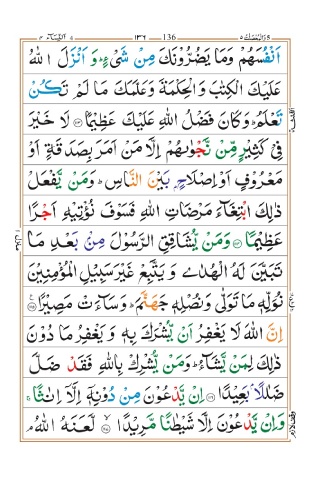 والمحصنت ٥ 136 ١٣٦ النسآء ٤
اَنْفُسَهُمْ وَمَا يَضُرُّوْنَكَ مِنْ شَيْءٍ ؕ وَ اَنْزَلَ اللهُ
عَلَيْكَ الْكِتٰبَ وَالْحِكْمَةَ وَعَلَّمَكَ مَا لَمْ تَكُنْ
تَعْلَمُ ؕ وَكَانَ فَضْلُ اللهِ عَلَيْكَ عَظِيْمًا ۝ لَا خَيْرَ
فِيْ كَثِيْرٍ مِّنْ نَّجْوٰىهُمْ اِلَّا مَنْ اَمَرَ بِصَدَقَةٍ اَوْ
مَعْرُوْفٍ اَوْ اِصْلَاحٍ بَيْنَ النَّاسِ ؕ وَمَنْ يَّفْعَلْ
ذٰلِكَ ابْتِغَآءَ مَرْضَاتِ اللهِ فَسَوْفَ نُؤْتِيْهِ اَجْرًا
عَظِيْمًا ۝ وَمَنْ يُّشَاقِقِ الرَّسُوْلَ مِنْۢ بَعْدِ مَا
تَبَيَّنَ لَهُ الْهُدٰى وَ يَتَّبِعْ غَيْرَ سَبِيْلِ الْمُؤْمِنِيْنَ
نُوَلِّهٖ مَا تَوَلّٰى وَنُصْلِهٖ جَهَنَّمَ ؕ وَسَآءَتْ مَصِيْرًا ۝
اِنَّ اللهَ لَا يَغْفِرُ اَنْ يُّشْرَكَ بِهٖ وَ يَغْفِرُ مَا دُوْنَ
ذٰلِكَ لِمَنْ يَّشَآءُ ؕ وَمَنْ يُّشْرِكْ بِاللهِ فَقَدْ ضَلَّ
ضَلٰلًاۢ بَعِيْدًا ۝ اِنْ يَّدْعُوْنَ مِنْ دُوْنِهٖٓ اِلَّآ اِنٰثًا ۚ
وَاِنْ يَّدْعُوْنَ اِلَّا شَيْطٰنًا مَّرِيْدًا ۝ لَّعَنَهُ اللهُ ۘ